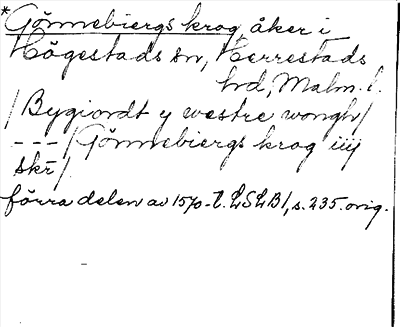 *Gönnebiergs krog åker i
Högestads sn, Herrestads
hd, Malm. l.
/Bygiordt y westre wongh/
---/Gönnebiergs krog iiij
skr̄/
förra delen av 1570-t. LSLB1, s. 235. orig.